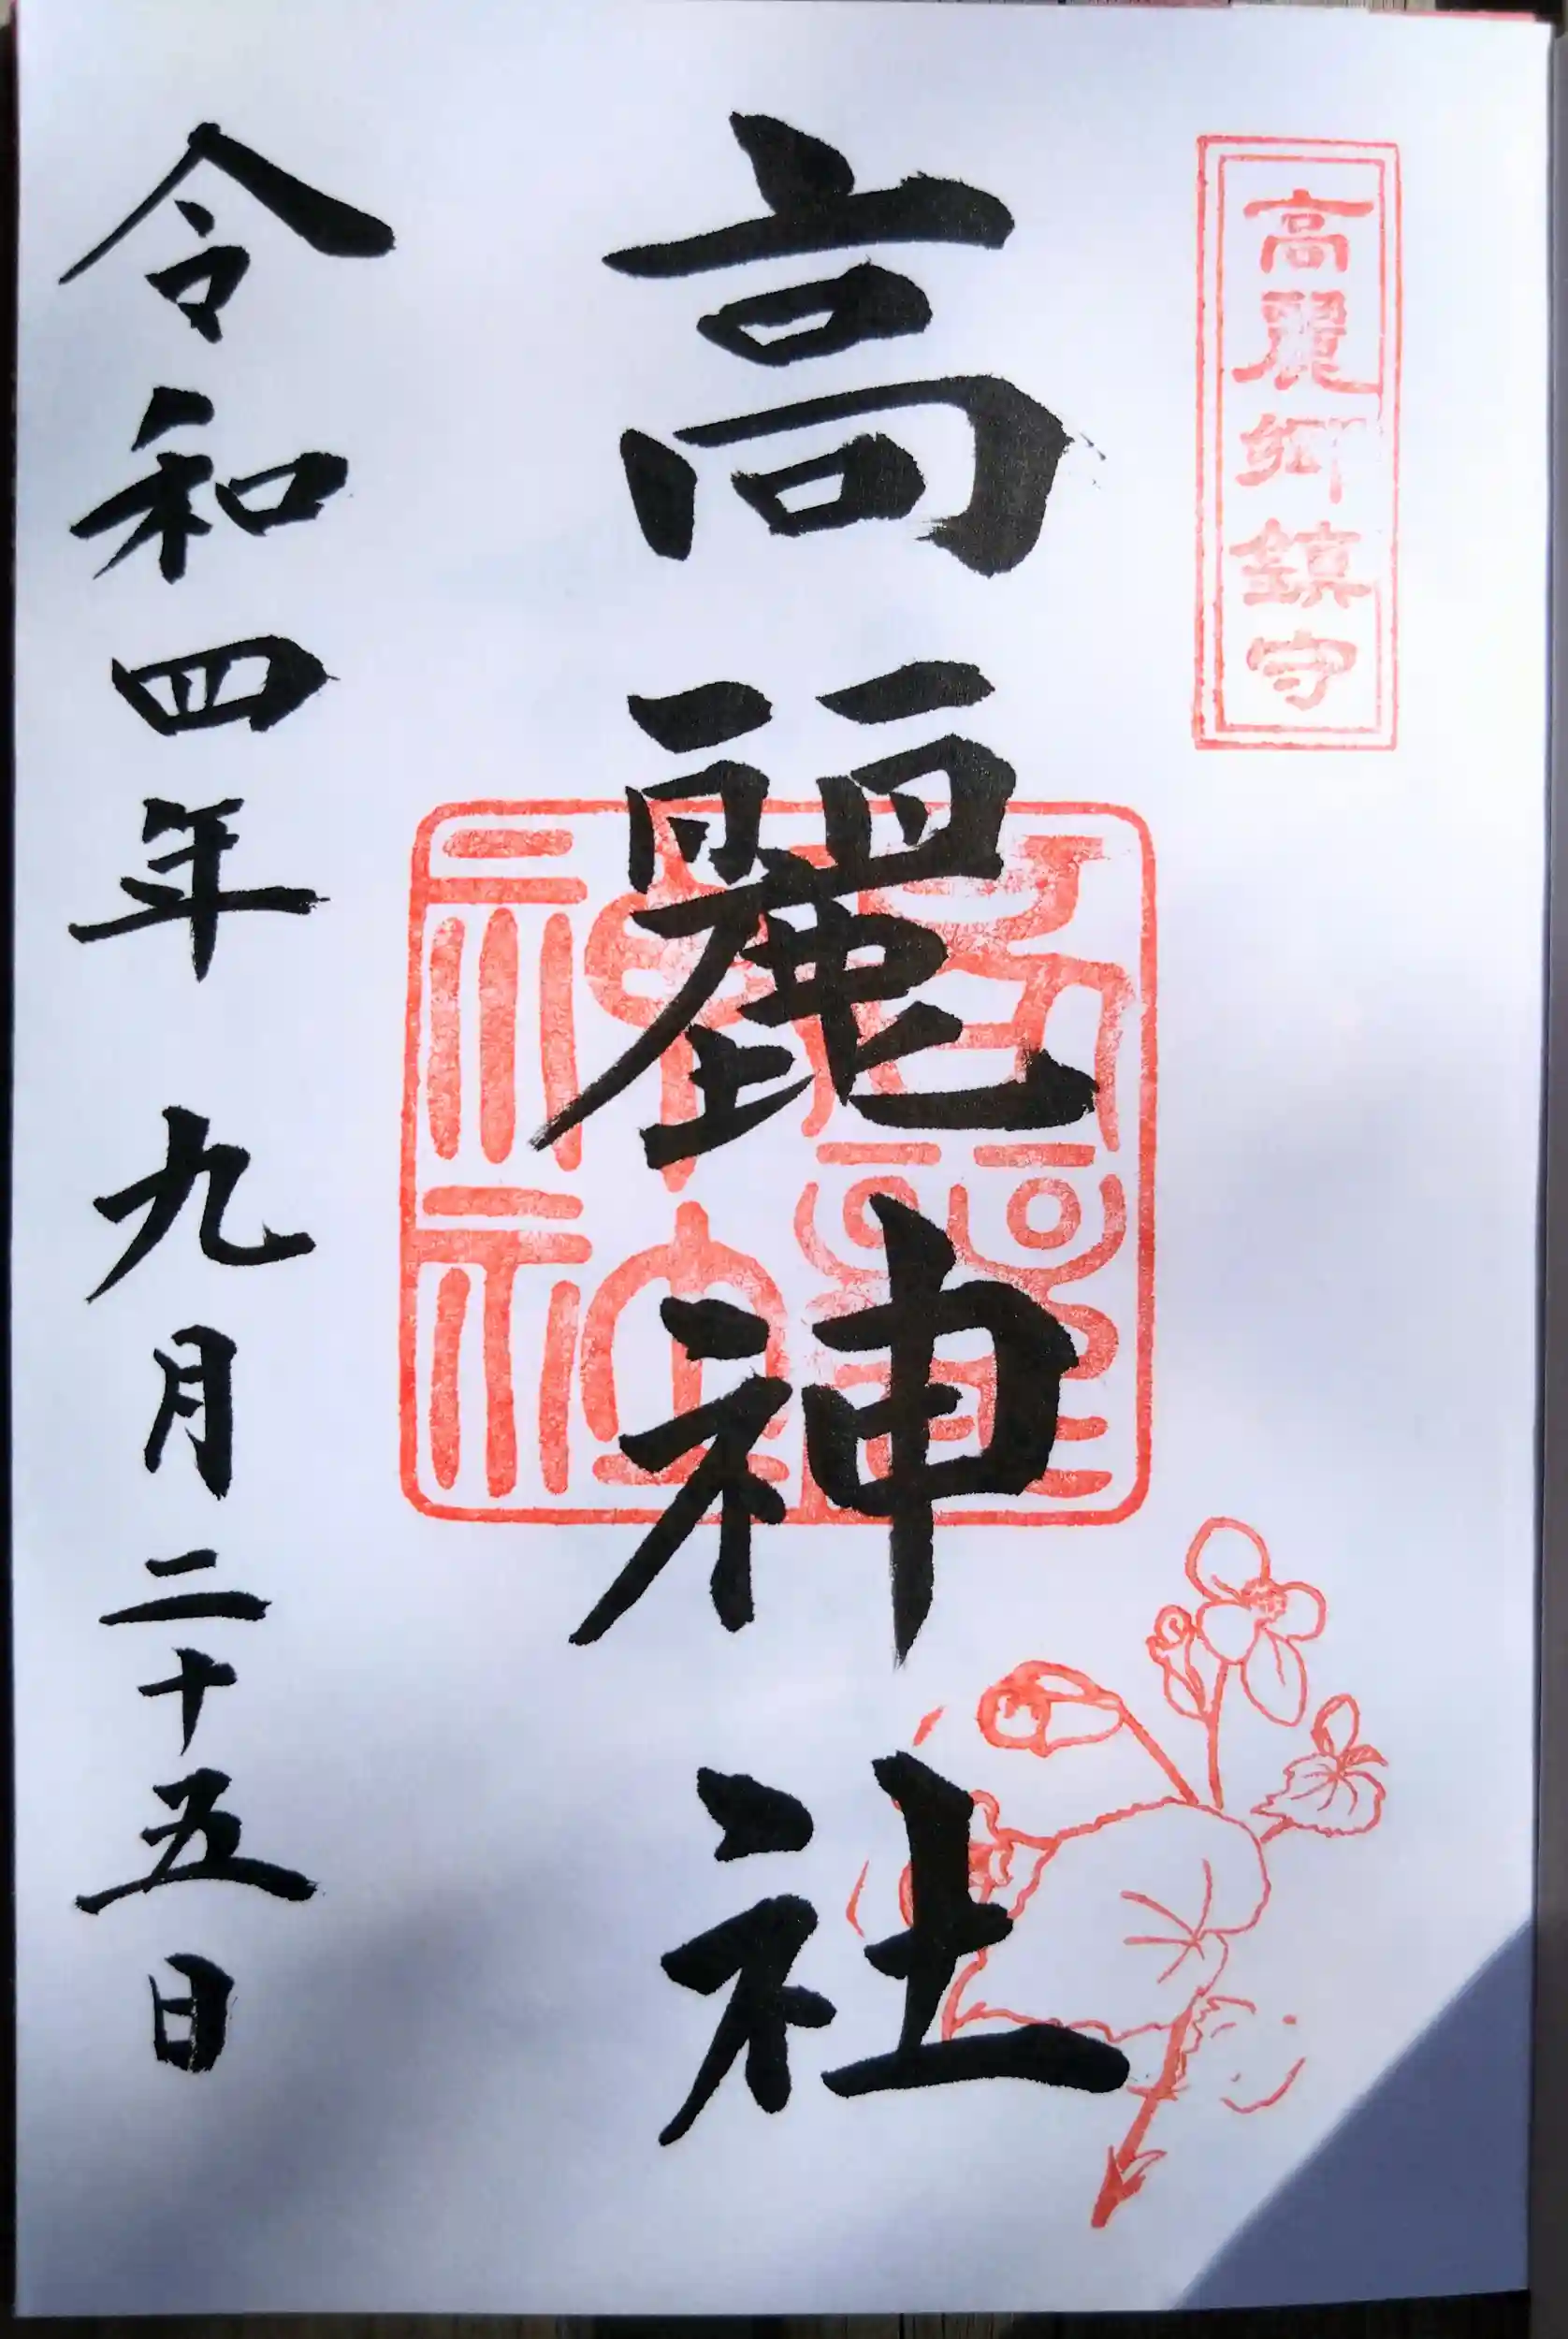 高麗郷鎮守
高麗神社
高麗
神社
令和四年九月二十五日